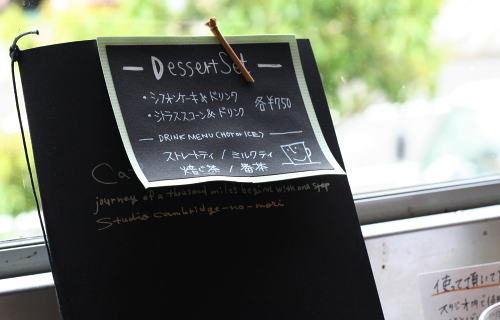 Dessert Set
・シフォンケーキ&ドリンク
・シトラススコーン&ドリンク
各¥750
DRINK MENU (HOT or ICE)
ストレートティ / ミルクティ
焙じ茶 / 番茶
journey of a thousand miles begins with one step
Studio Cambridge-no-mori
使って頂いて